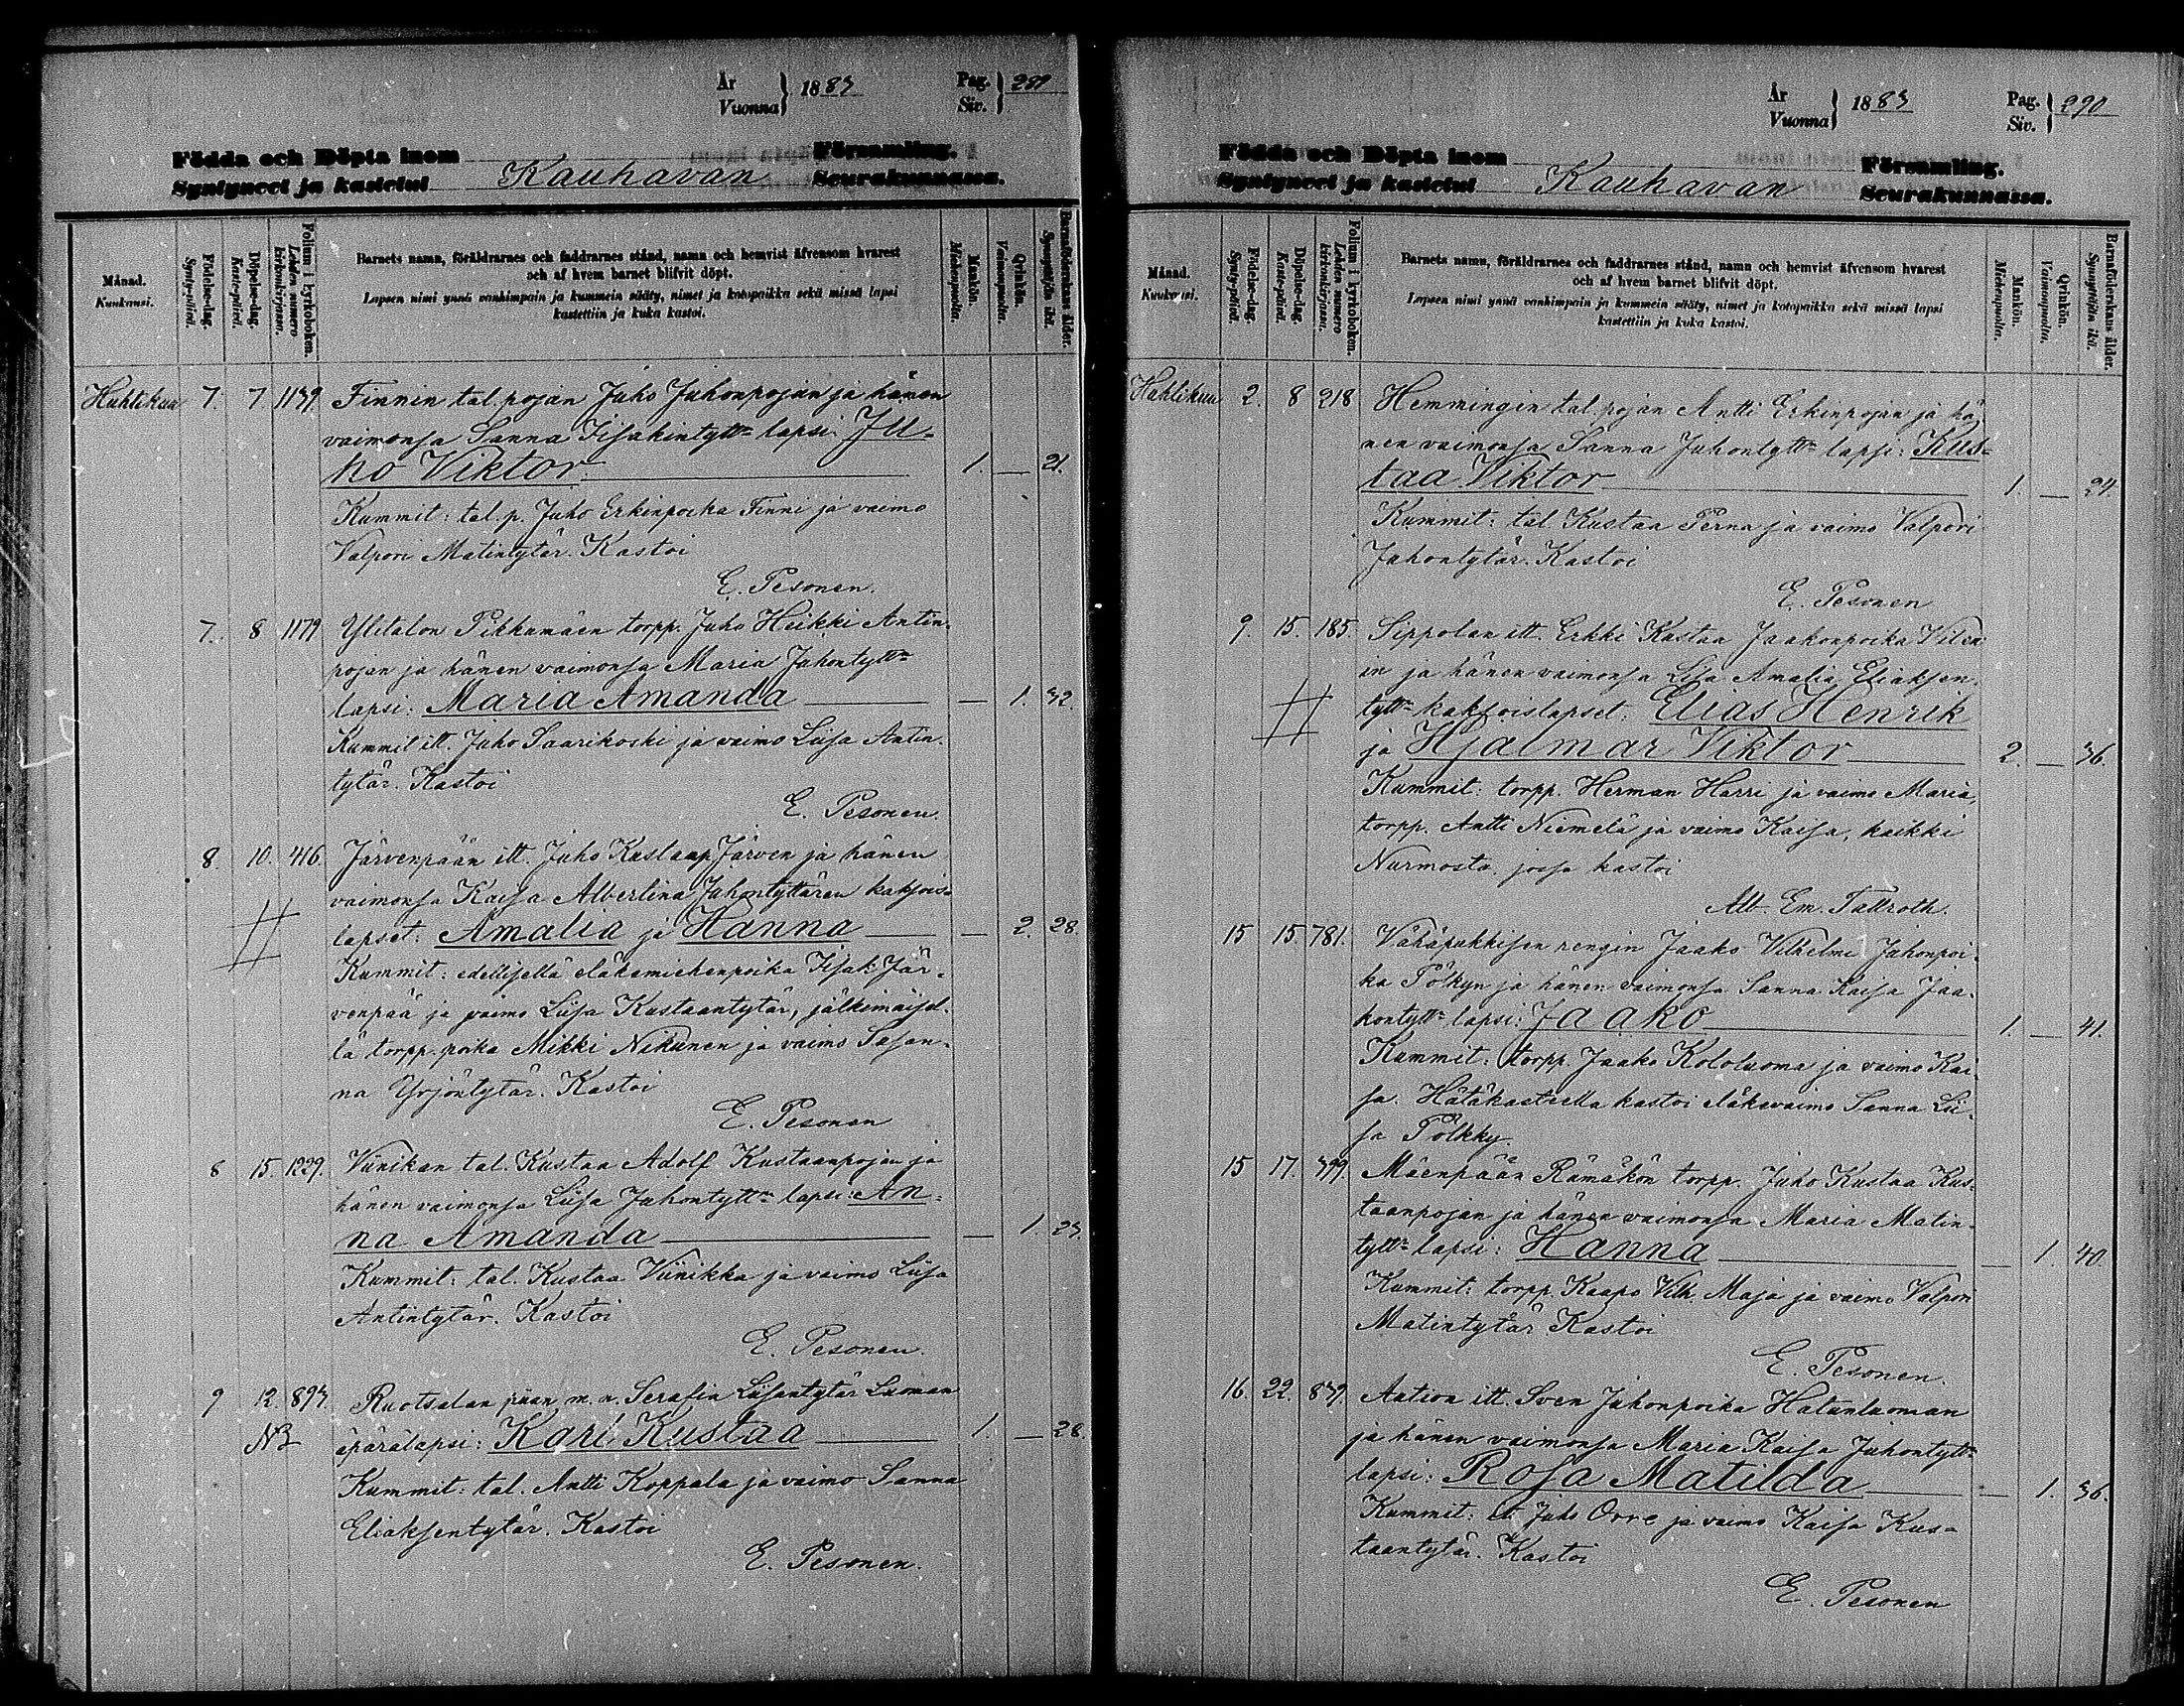 År
Vuonna } 1883
Pag.
Siv. } 289
Födda och Döpta inom
Syntyneet ja kastetut Kauhavan Församling.
Seurakunnassa.
Månad.
Kuukausi.
Födelse-dag.
Synty-päivä.
Döpelse-dag.
Kaste-päivä.
Folium i kyrkoboken.
Lehden numero kirkonkirjassa.
Barnets namn, föräldrarnes och faddrarnes stånd, namn och hemvist äfvensom hvarest
och af hvem barnet blifvit döpt.
Lapsen nimi ynnä vanhimpain ja kummein sääty, nimet ja kotopaikka sekä missä lapsi
kastettiin ja kuka kastoi.
Mankön.
Miehenpuolta.
Qvinkön.
Vaimonpuolta.
Barnaföderskans ålder.
Synnyttäjän ikä.
Huhtikuu 7. 7. 1139. Finnin tal. pojan Juho Juhonpojan ja hänen
vaimonsa Sanna Iisakintyttn lapsi: Ju-
ho Viktor 1. — 21.
Kummit: tal. p. Juho Erkinpoika Finni ja vaimo
Valpori Matintytär. Kastoi
E. Pesonen.
7. 8 1179 Ylitalon Pikkumäen torpp. Juho Heikki Antin-
pojan ja hänen vaimonsa Maria Juhontyttn
lapsi: Maria Amanda — 1. 32.
Kummit itt. Juho Saarikoski ja vaimo Liisa Antin-
tytär. Kastoi
E. Pesonen.
8. 10. 416. Järvenpään itt. Juho Kustaap. Järven ja hänen
vaimonsa Kaisa Albertina Juhontyttären kaksois-
lapset: Amalia ja Hanna — 2. 28.
Kummit: edellisellä eläkemiehenpoika Iisak Jär-
venpää ja vaimo Liisa Kustaantytär, jälkimäisel-
lä torpp. poika Mikki Nikunen ja vaimo Susan-
na Yrjöntytär. Kastoi
E. Pesonen
8 15. 1229. Viinikan tal. Kustaa Adolf Kustaanpojan ja
hänen vaimonsa Liisa Juhontyttn lapsi: An-
na Amanda — 1. 23.
Kummit: tal. Kustaa Viinikka ja vaimo Liisa
Antintytär. Kastoi
E. Pesonen.
9 12. 893. Ruotsalan piian m. n. Serafia Liisantytär Luoman
NB äpärälapsi: Karl Kustaa 1. — 28.
Kummit: tal. Antti Koppala ja vaimo Sanna
Eliaksentytär. Kastoi
E. Pesonen.
År
Vuonna } 1883
Pag.
Siv. } 290
Födda och Döpta inom
Syntyneet ja kastetut Kauhavan Församling.
Seurakunnassa.
Månad.
Kuukausi.
Födelse-dag.
Synty-päivä.
Döpelse-dag.
Kaste-päivä.
Folium i kyrkoboken.
Lehden numero kirkonkirjassa.
Barnets namn, föräldrarnes och faddrarnes stånd, namn och hemvist äfvensom hvarest
och af hvem barnet blifvit döpt.
Lapsen nimi ynnä vanhimpain ja kummein sääty, nimet ja kotopaikka sekä missä lapsi
kastettiin ja kuka kastoi.
Mankön.
Miehenpuolta.
Qvinkön.
Vaimonpuolta.
Barnaföderskans ålder.
Synnyttäjän ikä.
Huhtikuu 2. 8 218 Hemmingin tal. pojan Antti Erkinpojan ja hä-
nen vaimonsa Sanna Juhontyttn lapsi: Kus-
taa Viktor 1. — 24.
Kummit: tal Kustaa Perna ja vaimo Valpori
Juhontytär. Kastoi
E. Pesonen
9. 15. 185. Sippolan itt. Erkki Kustaa Jaakonpoika
in ja hänen vaimonsa Lisa Amalia Eliaksen-
tyttn kaksoislapset: Elias Henrik
ja Hjalmar Viktor 2. — 36.
Kummit: torpp. Herman Harri ja vaimo Maria,
torpp. Antti Niemelä ja vaimo Kaisa, kaikki
Nurmosta, jossa kastoi
Alb. Em. Tallroth.
15 15 781. Vähäpukkisen rengin Jaako Vilhelmi Juhonpoi-
ka Pölkyn ja hänen vaimonsa Sanna Kaisa Jaa-
kontyttn lapsi: Jaako 1. — 41.
Kummit: torpp. Jaako Kololuoma ja vaimo Kai-
sa. Hätäkasteella kastoi eläkevaimo Sanna Lii-
sa Pölkky.
15 17. 399. Mäenpään Rämäkön torpp. Juho Kustaa Kus-
taanpojan ja hänen vaimonsa Maria Matin-
tyttn lapsi: Hanna — 1. 40.
Kummit: torpp. Kaapo Vilh. Maja ja vaimo Valpori
Matintytär Kastoi
E. Pesonen.
16. 22. 839. Aation itt. Sven Juhonpoika Hatunluoman
ja hänen vaimonsa Maria Kaisa Juhontyttn
lapsi: Rosa Matilda — 1. 36.
Kummit: itt Juho Orre ja vaimo Kaisa Kus-
taantytär. Kastoi
E. Pesonen